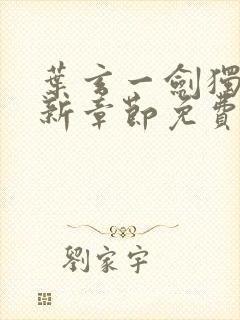 葉玄一劍獨
新章節免費
劉家宇